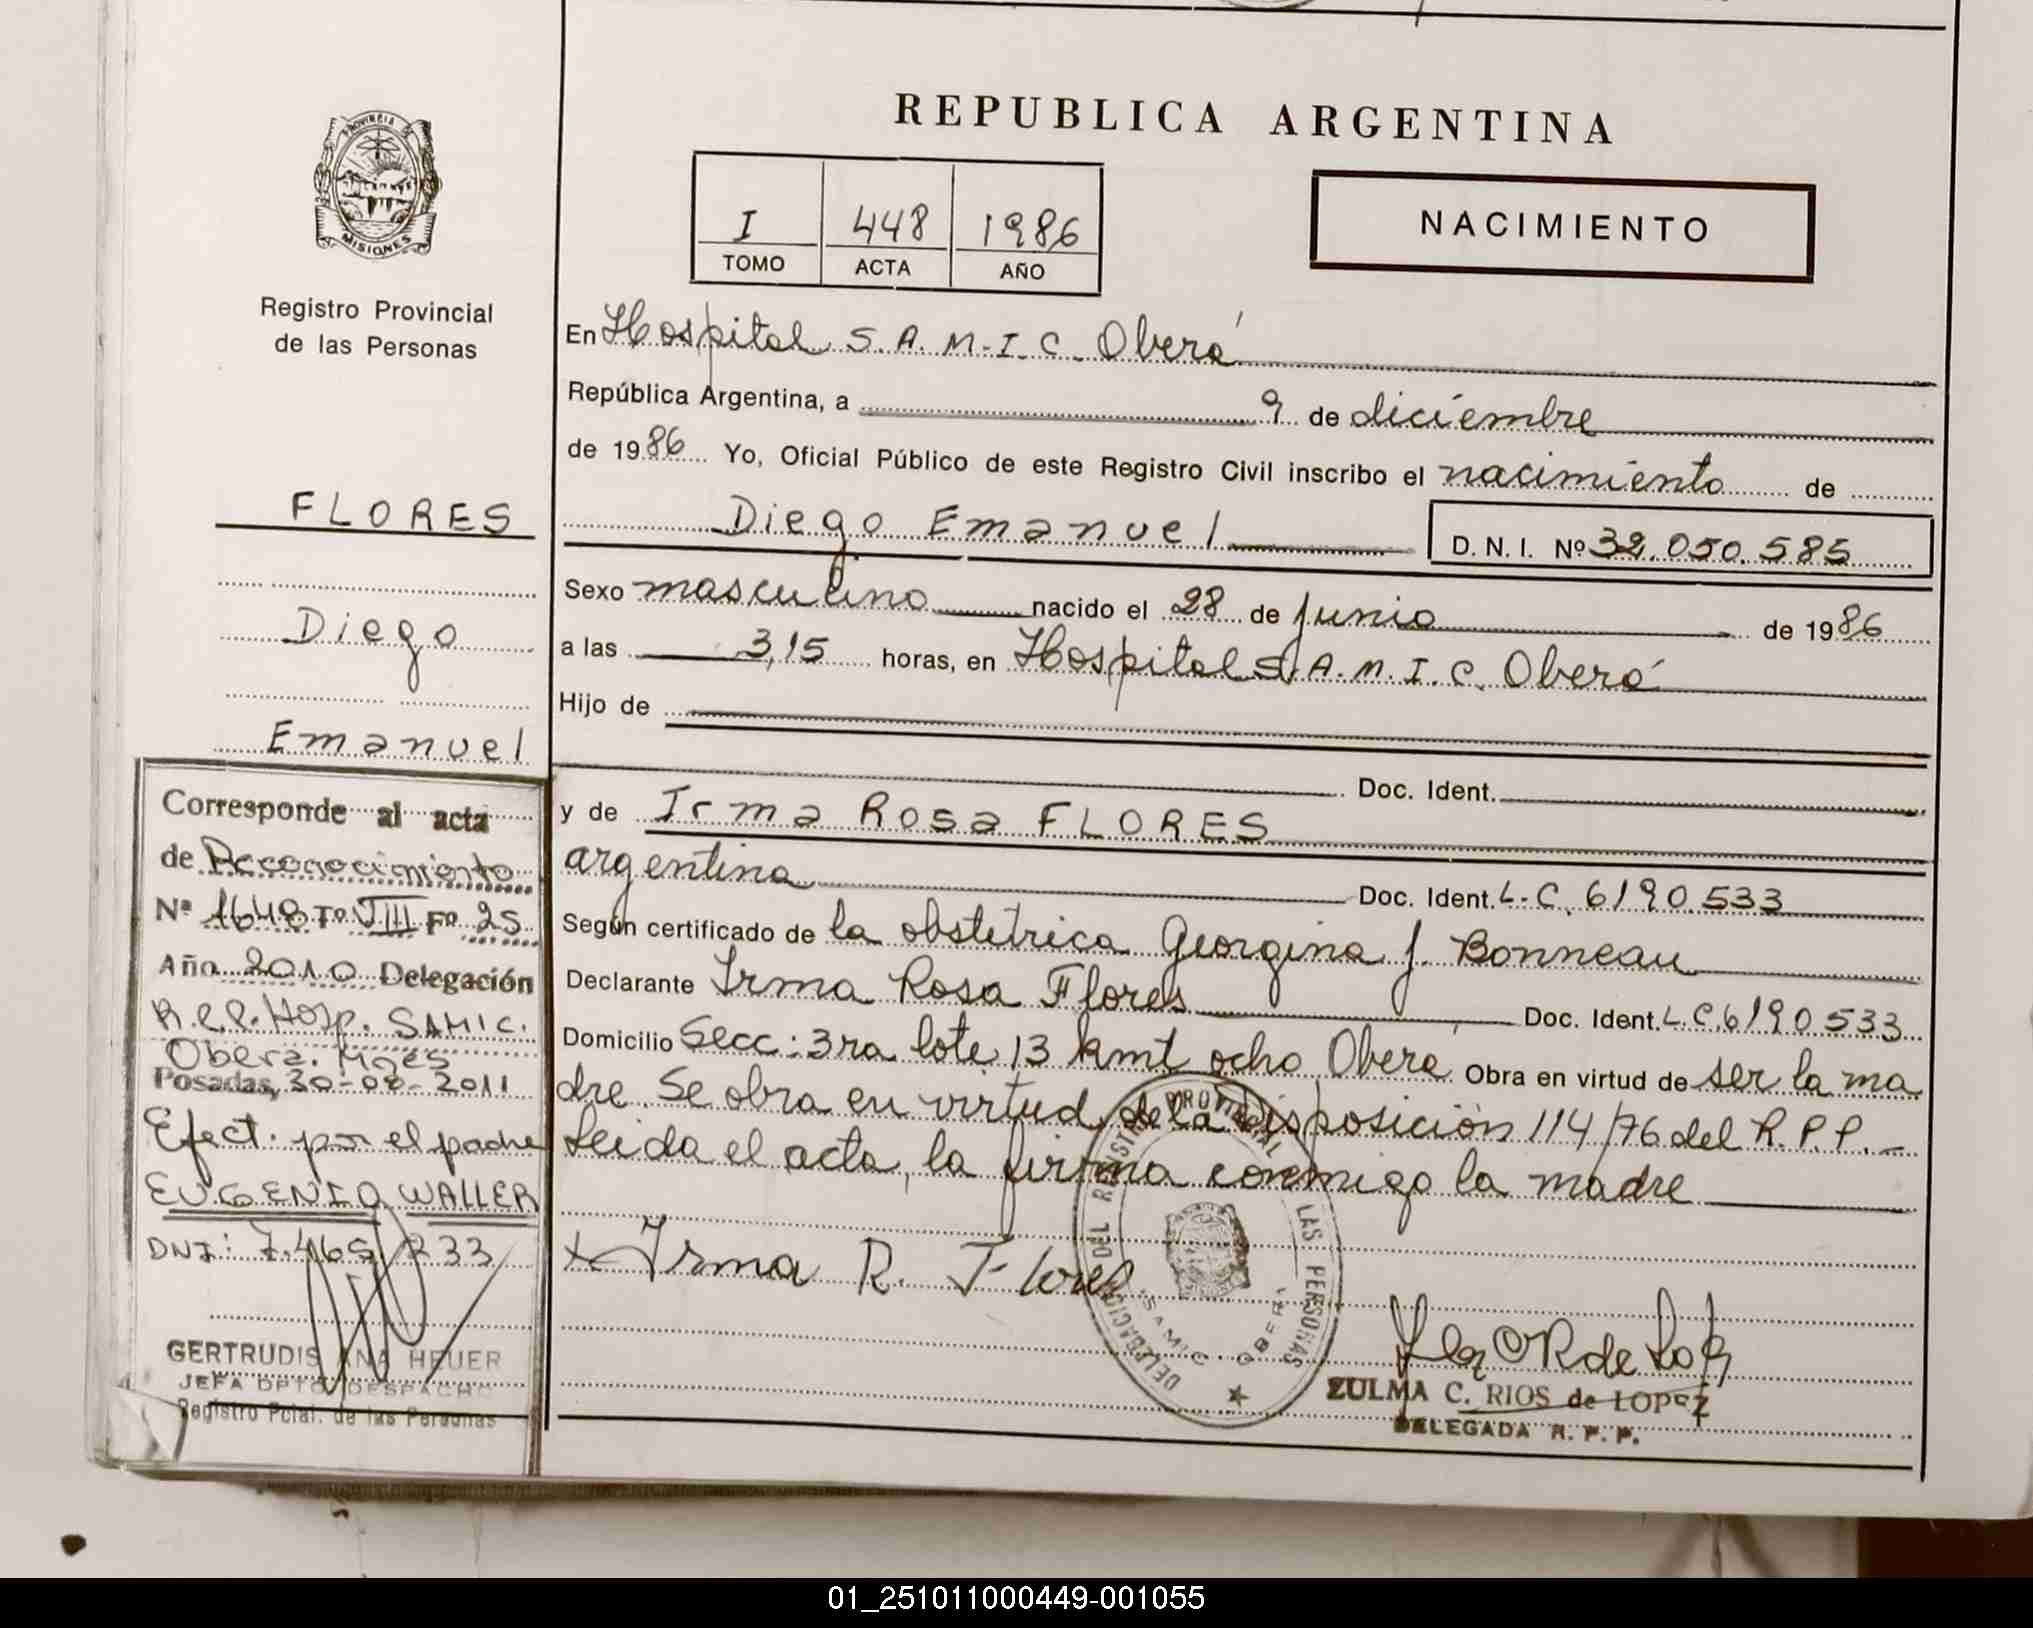 REPUBLICA ARGENTINA
PROVINCIA DE
MISIONES
Registro Provincial
de las Personas
I 448 1986
TOMO ACTA AÑO
NACIMIENTO
En Hospital S.A.M.I.C. Oberá
República Argentina, a 9 de diciembre
de 1986 Yo, Oficial Público de este Registro Civil inscribo el nacimiento de
Diego Emanuel D. N. I. Nº 32.050.585
Sexo masculino nacido el 28 de junio de 1986
a las 3,15 horas, en Hospital S.A.M.I.C. Oberá
Hijo de
Doc. Ident.
y de Irma Rosa FLORES
argentina Doc. Ident. L.C. 6190.533
Según certificado de la obstétrica Georgina J. Bonneau
Declarante Irma Rosa Flores Doc. Ident. L.C. 6190533
Domicilio Secc: 3ra lote 13 kmt ocho Oberá Obra en virtud de ser la ma
dre. Se obra en virtud de la disposición 114/76 del R.P.P.-
Leida el acta, la firma conmigo la madre
Irma R. Flores
DELEGACION DEL REGISTRO PROVINCIAL LAS PERSONAS
SAMIC - OBERA
ZULMA C. RIOS de LOPEZ
DELEGADA R. P. P.
FLORES
Diego
Emanuel
Corresponde al acta
de Reconocimiento
Nº 1648 Tº VIII Fº 25
Año 2010 Delegación
R.P.P. Hosp. SAMIC.
Oberá. Mnes
Posadas, 30-08-2011
Efect. por el padre
EUGENIO WALLER
DNI: 7.465.233
GERTRUDIS ANA HEUER
JEFA DPTO DESPACHO
Registro Pcial. de las Personas
01_251011000449-001055